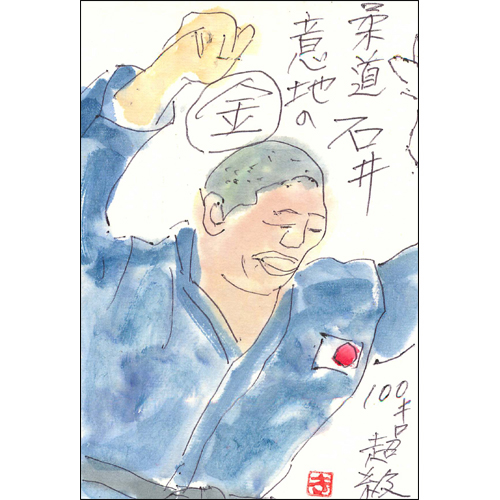 柔道 石井
意地の
金
100キロ超級